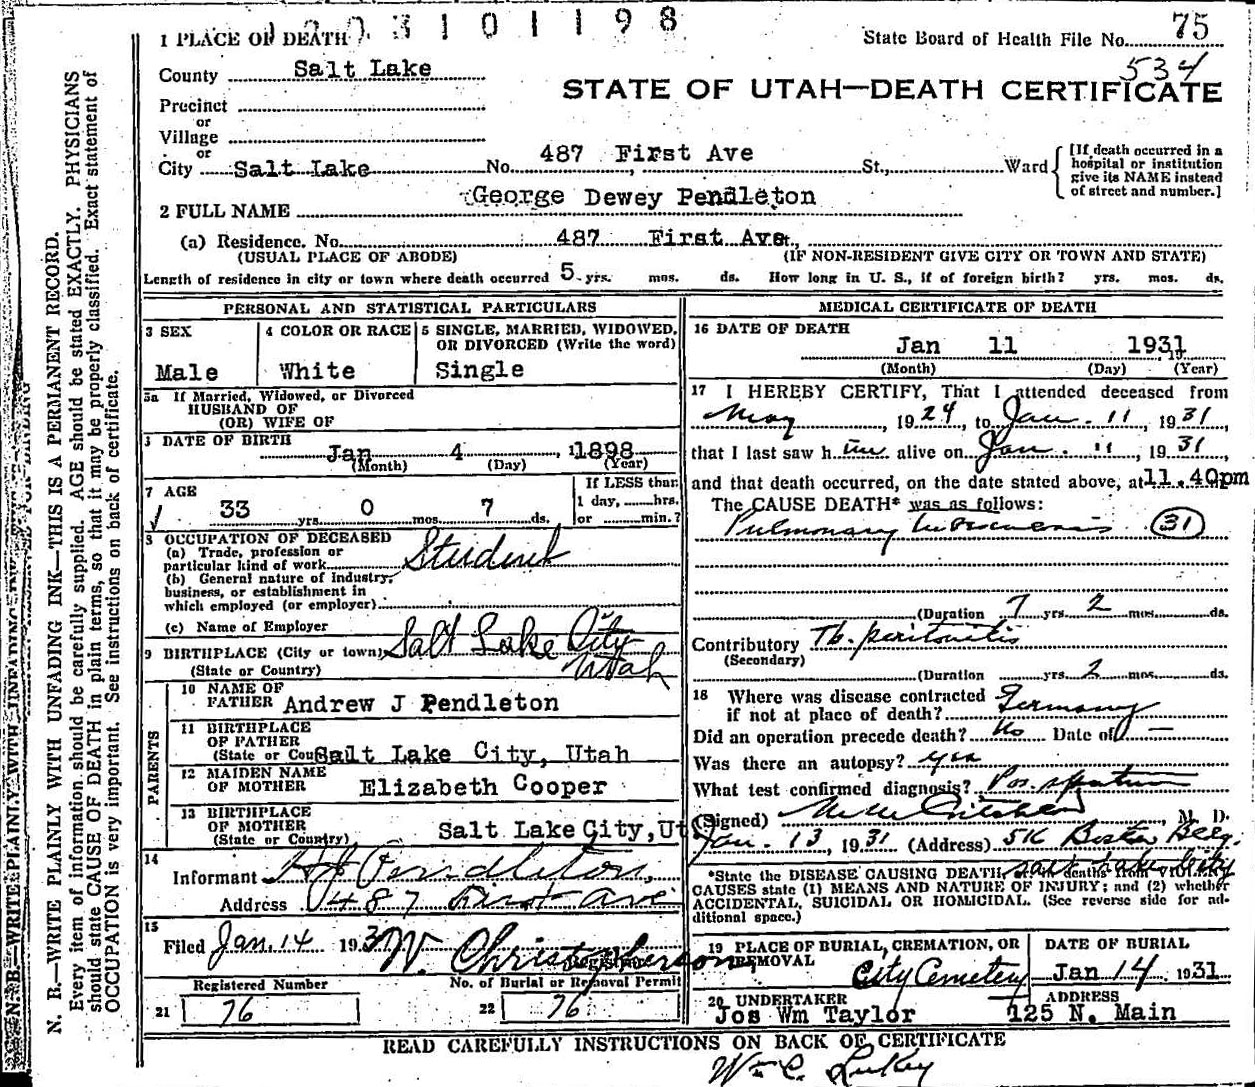 3 1 0 1 1 9 8
1 PLACE OF DEATH
State Board of Health File No. 75
534
County Salt Lake
STATE OF UTAH—DEATH CERTIFICATE
Precinct
or
Village
or
City Salt Lake No. 487 First Ave St., Ward
[If death occurred in a
hospital or institution
give its NAME instead
of street and number.]
2 FULL NAME George Dewey Pendleton
(a) Residence. No. 487 First Ave St.,
(USUAL PLACE OF ABODE) (IF NON-RESIDENT GIVE CITY OR TOWN AND STATE)
Length of residence in city or town where death occurred 5 yrs. mos. ds. How long in U. S., if of foreign birth? yrs. mos. ds.
PERSONAL AND STATISTICAL PARTICULARS
3 SEX
Male
4 COLOR OR RACE
White
5 SINGLE, MARRIED, WIDOWED,
OR DIVORCED (Write the word)
Single
5a If Married, Widowed, or Divorced
HUSBAND OF
(OR) WIFE OF
DATE OF BIRTH
Jan 4, 1898
(Month) (Day) (Year)
7 AGE
33 yrs. 0 mos. 7 ds.
If LESS than
1 day, hrs.
or min.?
8 OCCUPATION OF DECEASED
(a) Trade, profession or
particular kind of work Student
(b) General nature of industry,
business, or establishment in
which employed (or employer)
(c) Name of Employer
9 BIRTHPLACE (City or town) Salt Lake City
(State or Country) Utah
PARENTS
10 NAME OF
FATHER Andrew J Pendleton
11 BIRTHPLACE
OF FATHER
(State or Country) Salt Lake City, Utah
12 MAIDEN NAME
OF MOTHER Elizabeth Cooper
13 BIRTHPLACE
OF MOTHER
(State or Country) Salt Lake City, Ut
14
Informant Pendleton,
Address 487 First Ave
15
Filed Jan. 14 193 W. Christopherson
Registrar
Registered Number
21 76
No. of Burial or Removal Permit
22 76
MEDICAL CERTIFICATE OF DEATH
16 DATE OF DEATH
Jan 11 1931
(Month) (Day) (Year)
17 I HEREBY CERTIFY, That I attended deceased from
May, 1924, to Jan. 11, 1931,
that I last saw him alive on Jan. 11, 1931,
and that death occurred, on the date stated above, at 11.40pm
The CAUSE DEATH* was as follows:
Pulmonary tuberculosis 31
(Duration 7 yrs. 2 mos. ds.
Contributory Tb. peritonitis
(Secondary)
(Duration yrs. 2 mos. ds.
18 Where was disease contracted
if not at place of death? Germany
Did an operation precede death? No Date of —
Was there an autopsy? yes
What test confirmed diagnosis? Pos. sputum
(Signed) M. D.
Jan. 13, 1931 (Address) 516 Boston Bldg.
Salt Lake City
*State the DISEASE CAUSING DEATH, deaths from VIOLENT
CAUSES state (1) MEANS AND NATURE OF INJURY; and (2) whether
ACCIDENTAL, SUICIDAL OR HOMICIDAL. (See reverse side for ad-
ditional space.)
19 PLACE OF BURIAL, CREMATION, OR
REMOVAL
City Cemetery
DATE OF BURIAL
Jan 14 1931
20 UNDERTAKER
Jos Wm Taylor
ADDRESS
125 N. Main
READ CAREFULLY INSTRUCTIONS ON BACK OF CERTIFICATE
Wm C. Lukey
N. B.—WRITE PLAINLY WITH UNFADING INK—THIS IS A PERMANENT RECORD.
Every item of information should be carefully supplied. AGE should be stated EXACTLY. PHYSICIANS
should state CAUSE OF DEATH in plain terms, so that it may be properly classified. Exact statement of
OCCUPATION is very important. See instructions on back of certificate.